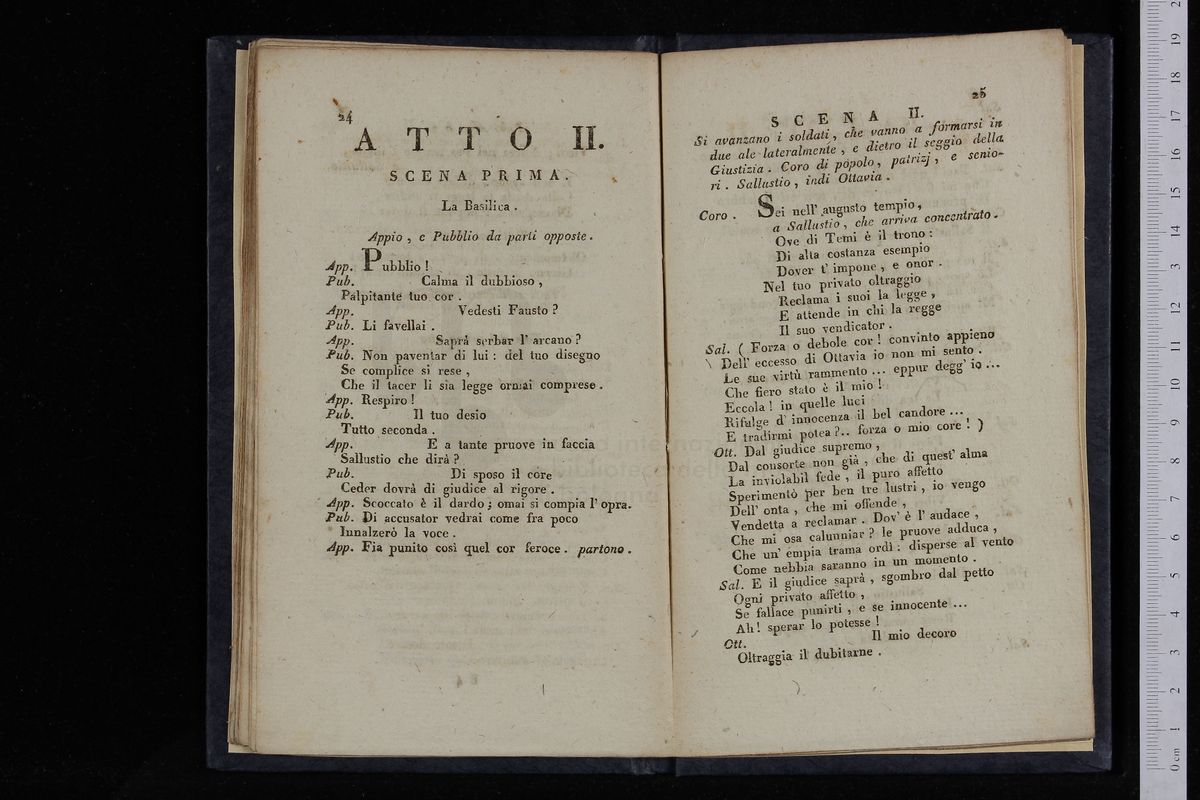 24
ATTO II.
SCENA PRIMA.
La Basilica .
Appio , e Pubblio da parti opposte .
App. Pubblio !
Pub. Calma il dubbioso ,
Palpitante tuo cor .
App. Vedesti Fausto ?
Pub. Li favellai .
App. Saprà serbar l' arcano ?
Pub. Non paventar di lui : del tuo disegno
Se complice si rese ,
Che il tacer li sia legge ormai comprese .
App. Respiro !
Pub. Il tuo desio
Tutto seconda .
App. E a tante pruove in faccia
Sallustio che dirà ?
Pub. Di sposo il core
Ceder dovrà di giudice al rigore .
App. Scoccato è il dardo ; omai si compia l' opra.
Pub. Di accusator vedrai come fra poco
Innalzerò la voce .
App. Fia punito così quel cor feroce . partono .
25
SCENA II.
Si avanzano i soldati , che vanno a formarsi in
due ale lateralmente , e dietro il seggio della
Giustizia . Coro di popolo , patrizj , e senio-
ri . Sallustio , indi Ottavia .
Coro . Sei nell' augusto tempio ,
a Sallustio , che arriva concentrato .
Ove di Temi è il trono :
Di alta costanza esempio
Dover t' impone , e onor .
Nel tuo privato oltraggio
Reclama i suoi la legge ,
E attende in chi la regge
Il suo vendicator .
Sal. ( Forza o debole cor ! convinto appieno
Dell' eccesso di Ottavia io non mi sento .
Le sue virtù rammento ... eppur degg' io ...
Che fiero stato è il mio !
Eccola ! in quelle luci
Rifulge d' innocenza il bel candore ...
E tradirmi potea ?.. forza o mio core ! )
Ott. Dal giudice supremo ,
Dal consorte non già , che di quest' alma
La inviolabil fede , il puro affetto
Sperimentò per ben tre lustri , io vengo
Dell' onta , che mi offende ,
Vendetta a reclamar . Dov' è l' audace ,
Che mi osa calunniar ? le pruove adduca ,
Che un' empia trama ordì : disperse al vento
Come nebbia saranno in un momento .
Sal. E il giudice saprà , sgombro dal petto
Ogni privato affetto ,
Se fallace punirti , e se innocente ...
Ah ! sperar lo potesse !
Ott. Il mio decoro
Oltraggia il dubitarne .
0 cm 1 2 3 4 5 6 7 8 9 10 11 12 13 14 15 16 17 18 19 2